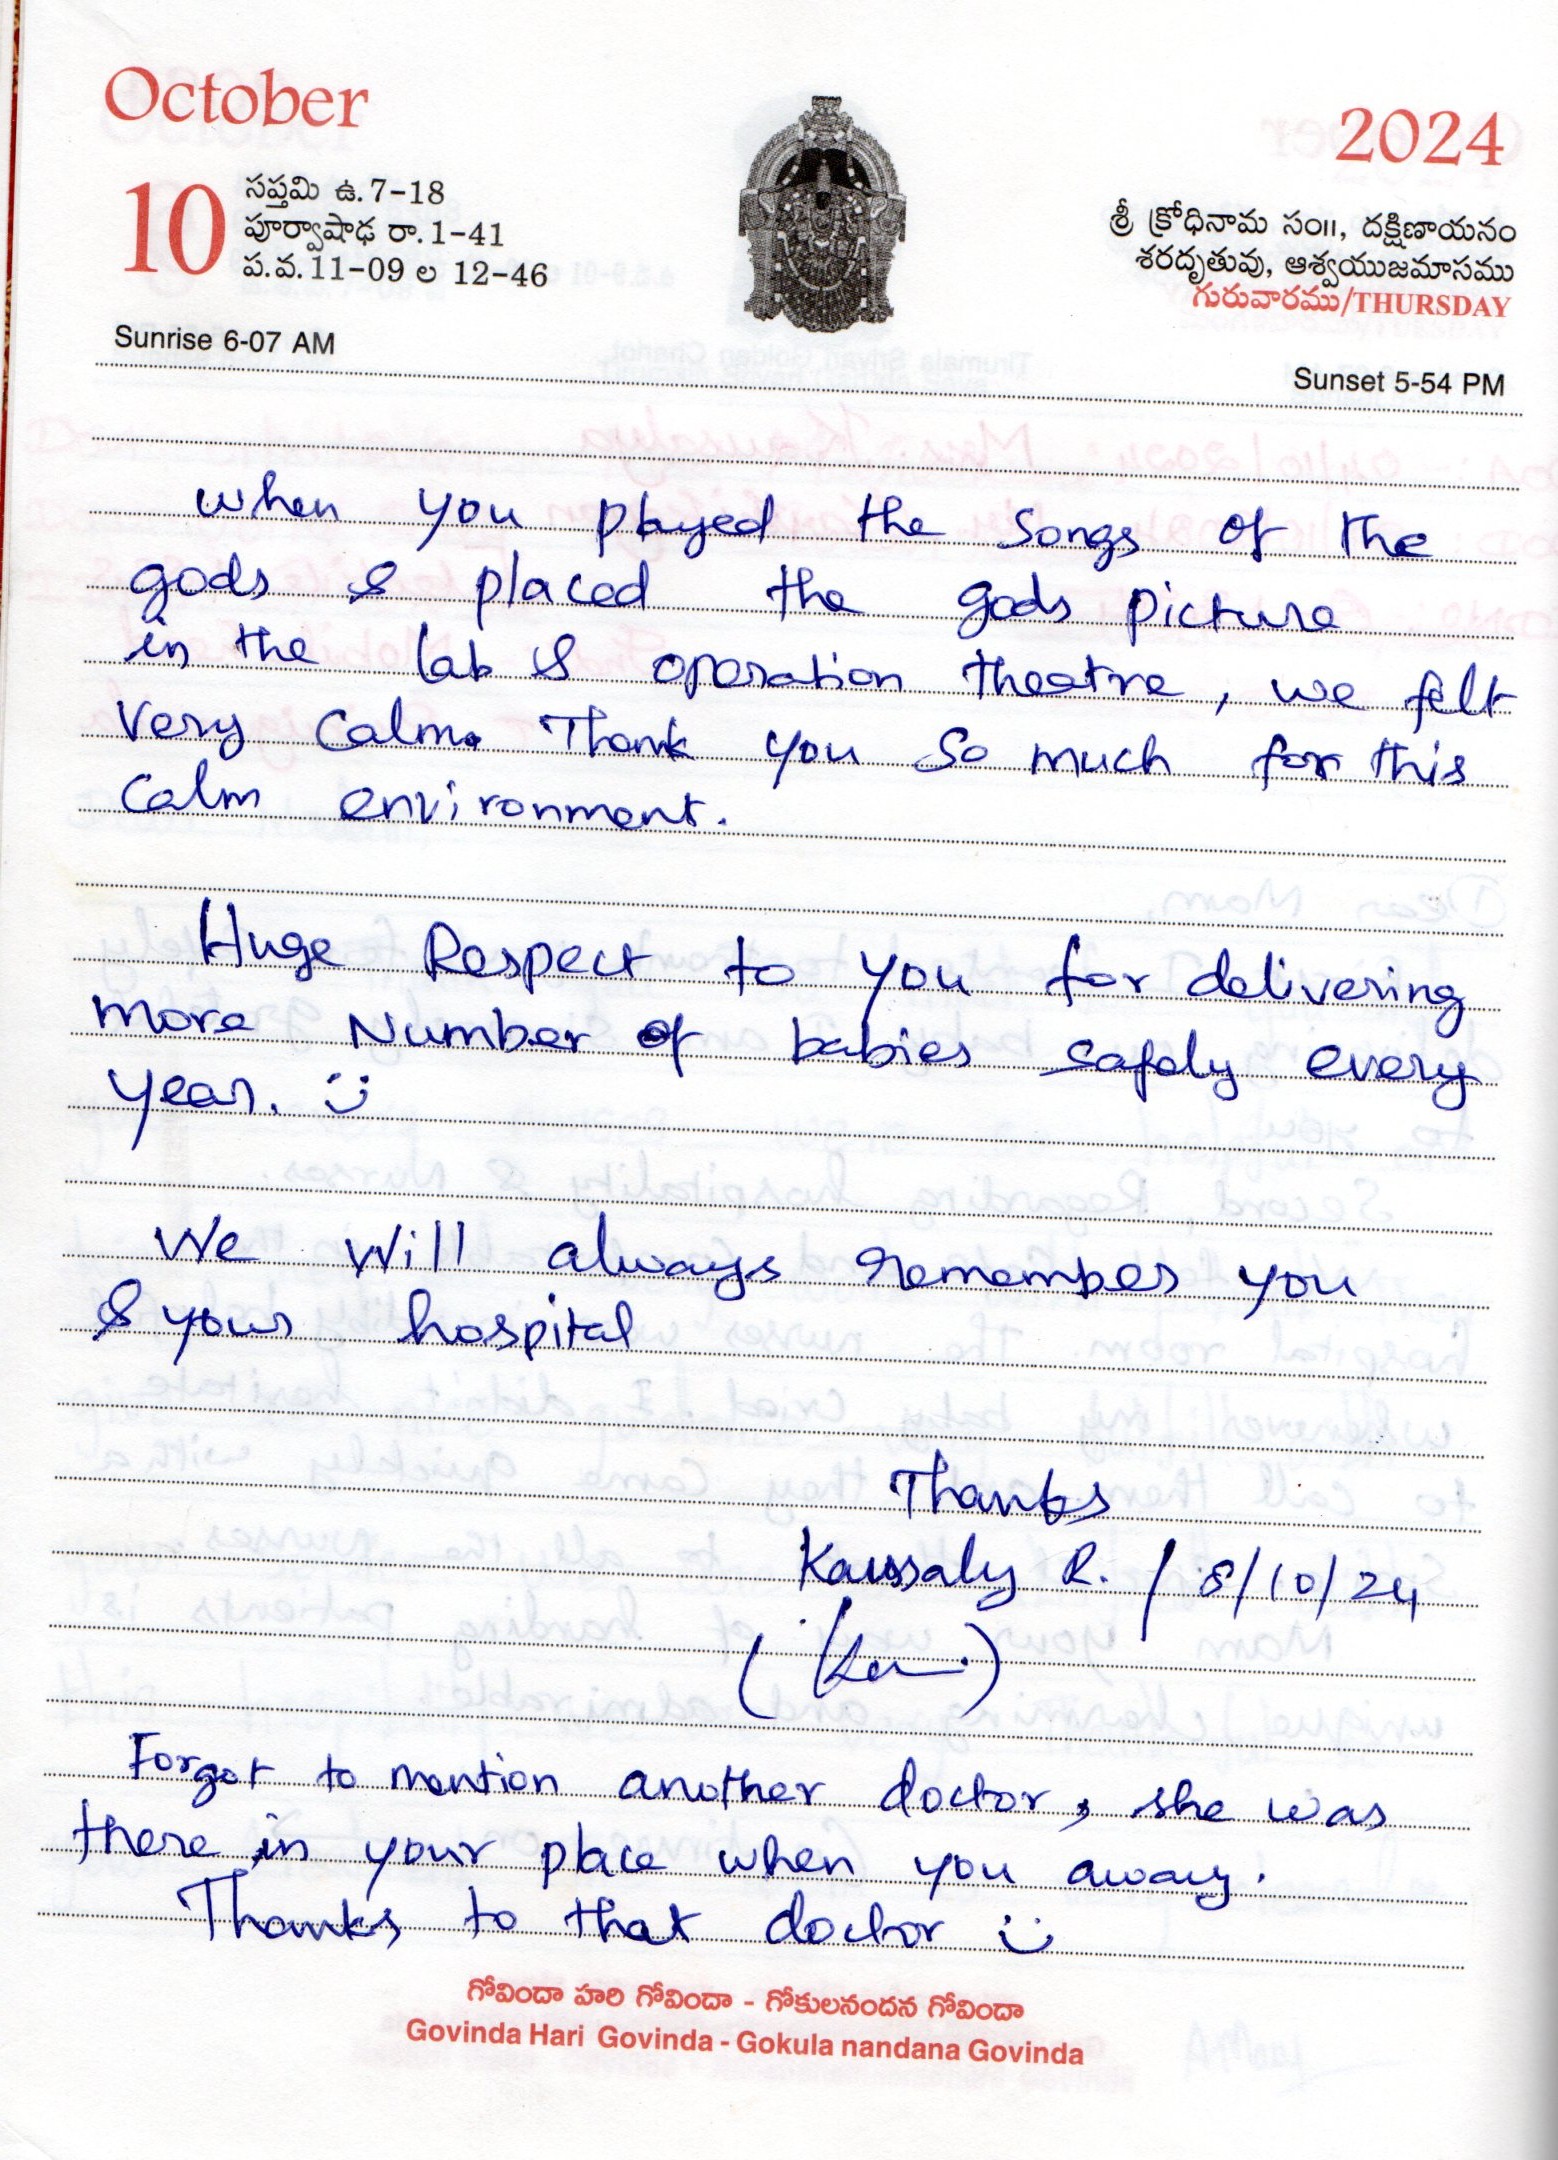 October
2024
10
సప్తమి ఉ. 7-18
పూర్వాషాఢ రా. 1-41
ప.వ. 11-09 ల 12-46
శ్రీ క్రోధినామ సం॥, దక్షిణాయనం
శరదృతువు, ఆశ్వయుజమాసము
గురువారము/THURSDAY
Sunrise 6-07 AM
Sunset 5-54 PM
when you played the songs of the
gods & placed the gods picture
in the lab & operation theatre, we felt
very calm. Thank you so much for this
calm environment.
Huge Respect to you for delivering
more Number of babies safely every
year. :)
We will always remember you
& your hospital
Thanks
R. / 8/10/24
Forgot to mention another doctor, she was
there in your place when you away.
Thanks to that doctor :)
గోవిందా హరి గోవిందా - గోకులనందన గోవిందా
Govinda Hari Govinda - Gokula nandana Govinda